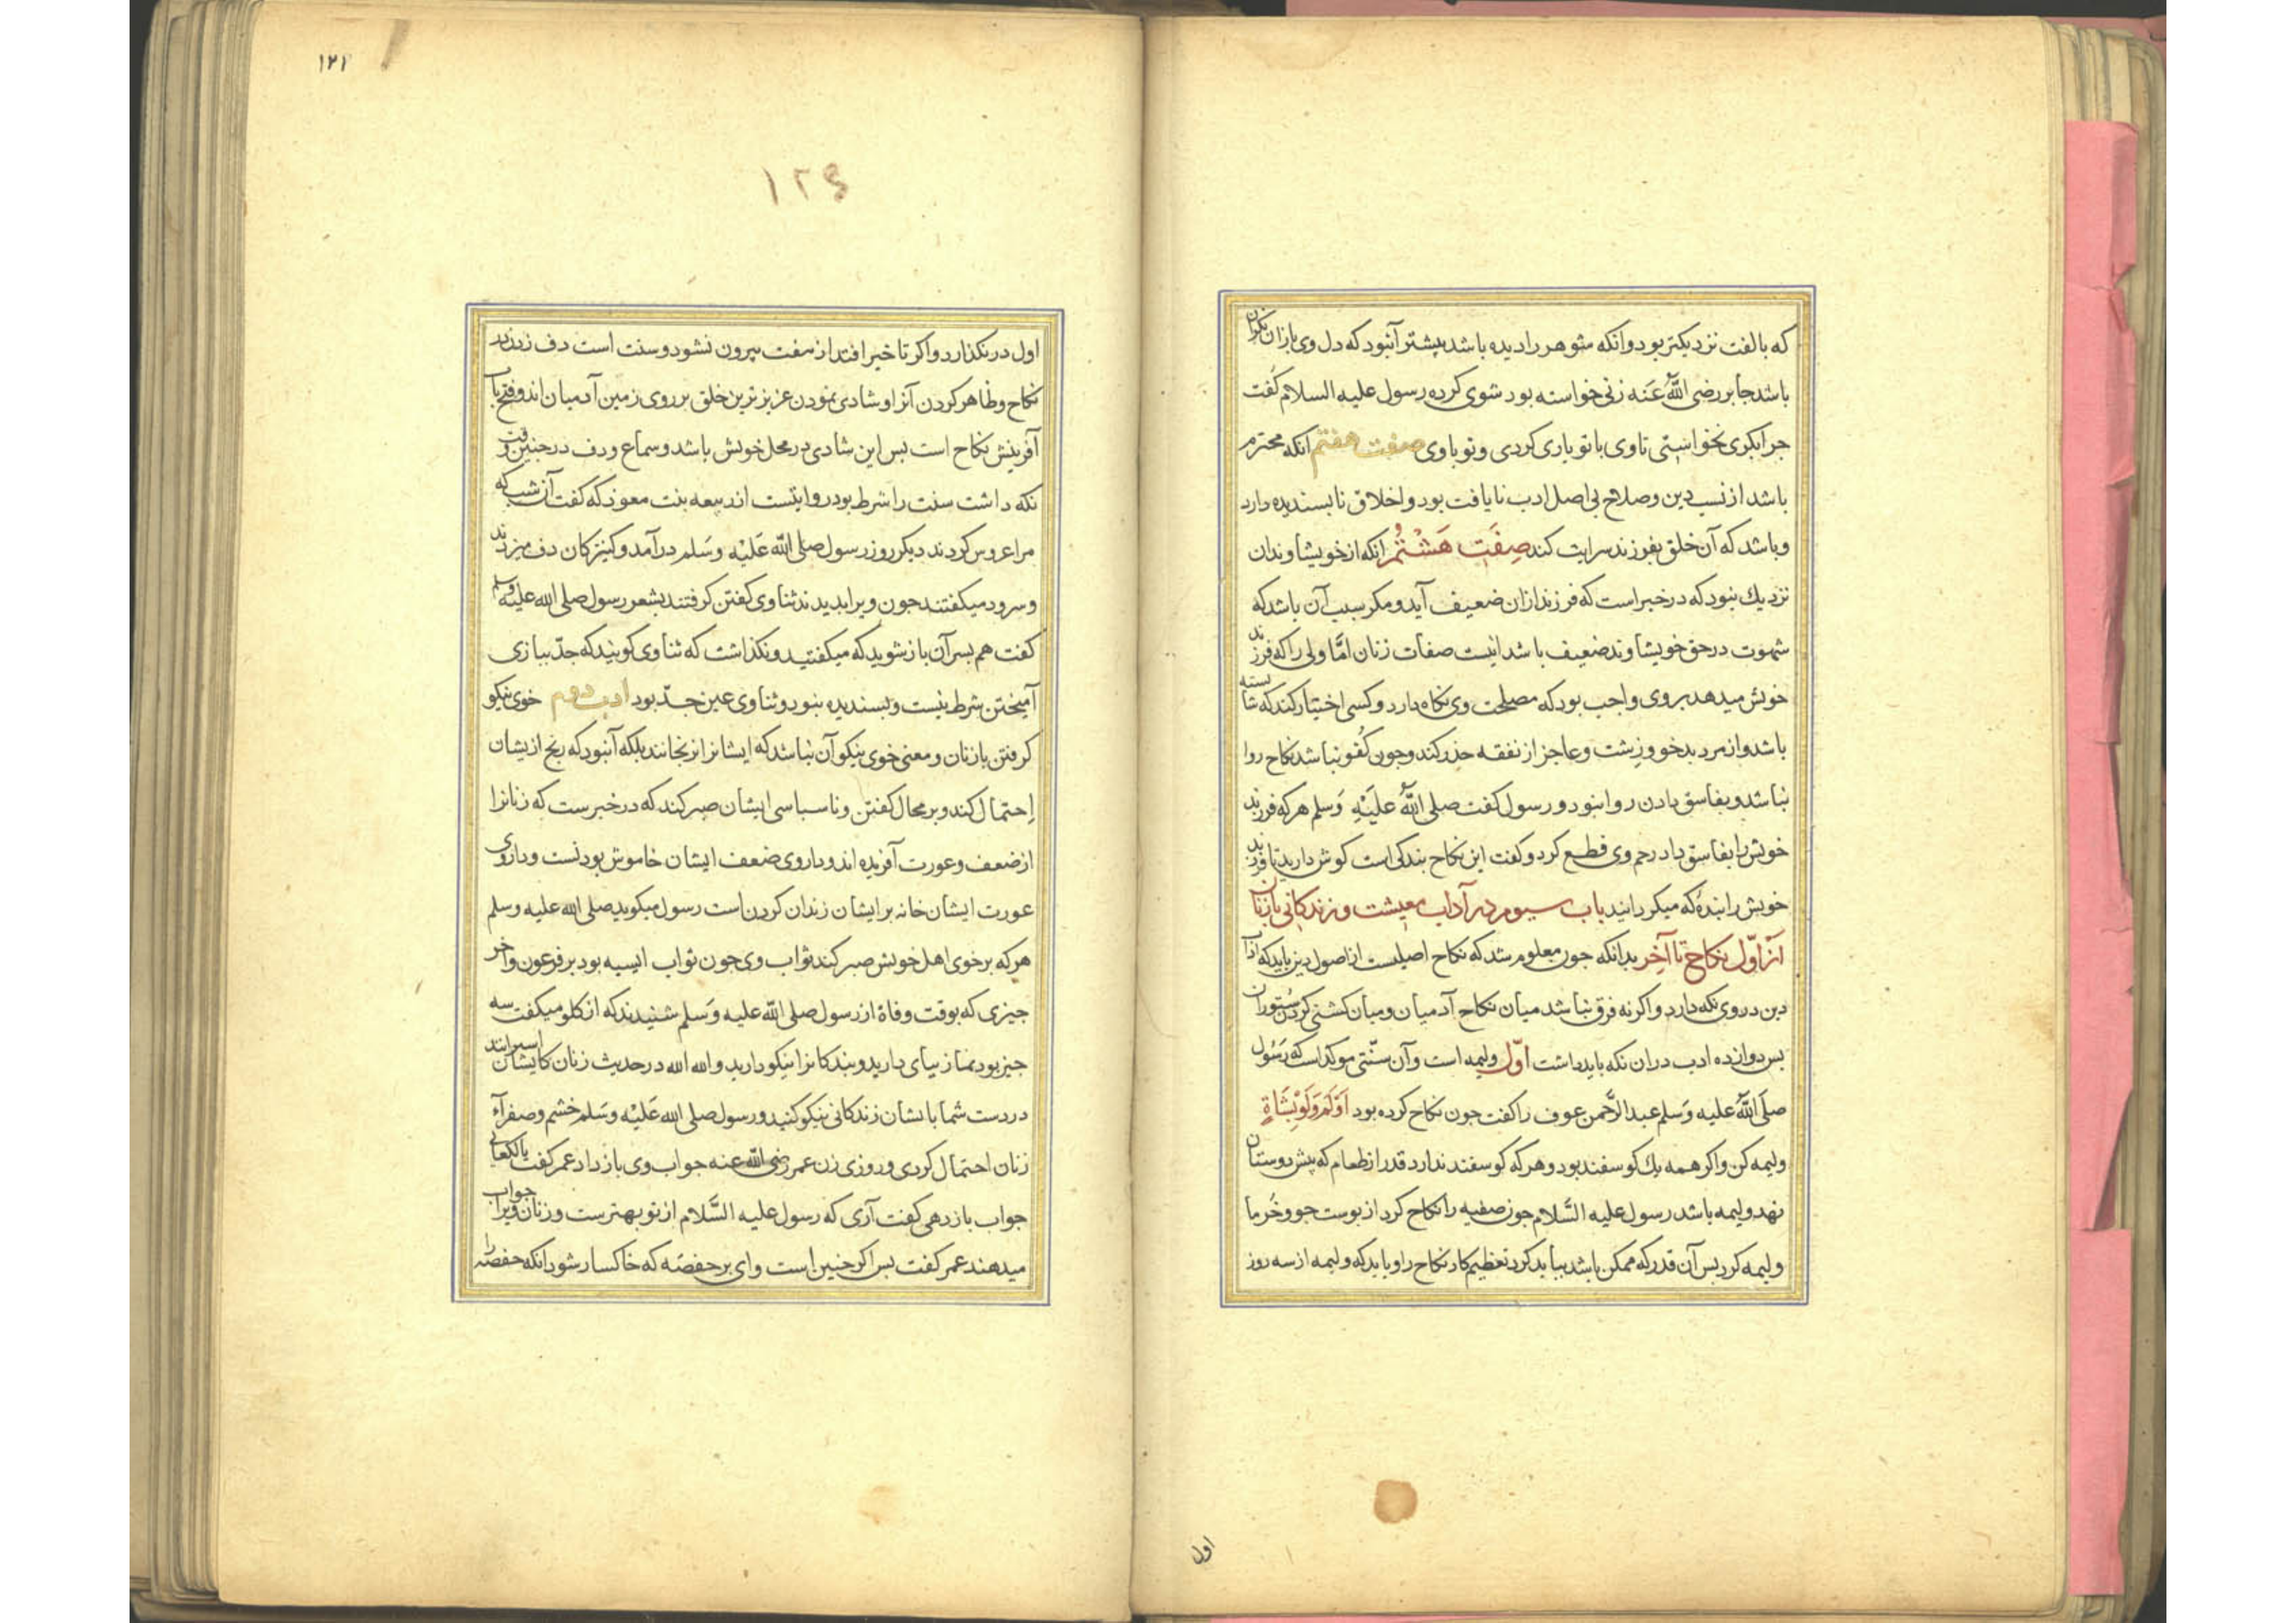 که بالفت نزدیکتر بود و انکه شوهر را دیده باشد بیشتر آن بود که دل وی بازان نکران
باشد جابر رضی اللّٰه عَنه زنی خواسته بود شوی کرده رسول علیه السلام کُفت
جرا بکری نخواستی تا وی با تو بازی کردی و تو با وی صفت هفتم انکه محترم
باشد از نسب دین و صلاح بی اصل ادب نا یافت بود و اخلاق نابسندیده دارد
و باشد که آن خلق بفرزند سرایت کند صِفَتِ هَشْتُمْ انکه از خویشاوندان
نزدیك نبود که در خبر است که فرزند ازان ضعیف آید و مکر سبب آن باشد که
شهوت در حق خویشاوند ضعیف باشد اینست صفات زنان امّا ولی را که فرزند
خویش میدهد بر وی واجب بود که مصلحت وی نکاه دارد و کسی اختیار کند که شایسته
باشد و از مرد بدخو و زشت و عاجز از نفقه حذر کند و جون کُفو نباشد نکاح روا
نباشد و بفاسق دادن روا نبود و رسول کفت صلی اللّٰهُ علیَْهِ وَسلم هر که فرزند
خویش را بفاسق داد رحم وی قطع کرد و کفت این نکاح بندکی است کوش دارید تا فرزند
خویش را بندهٔ که میکردانید باب سیوم در آداب معیشت و زندکانی با زنان
از اوّل نکاح تا آخِر بدانکه جون معلوم شد که نکاح اصلیست از اصول دین باید که آداب
دین در وی نکه دارد و اکرنه فرق نباشد میان نکاح آدمیان و میان کشنی کردن ستوران
بس دوازده ادب دران نکه باید داشت اوّل ولیمه است و آن سنّتی موکد است که رَسُول
صلّی اللّٰهُ علیه وَسلم عبد الرّحمن عوف را کفت جون نکاح کرده بود اَوْلِمْ وَلَوْ بِشَاةٍ
ولیمه کن و اکر همه یك کوسفند بود و هر که کوسفند ندارد قدر از طعام که پیش دوستان
نهد ولیمه باشد رسول علیه السَّلام جون صفیه را نکاح کرد از بوست جو و خُرما
ولیمه کرد بس آن قدر که ممکن باشد بباید کرد تعظیم کار نکاح را و باید که ولیمه از سه روز
اول
۱۲۱
۱۲۴
اول در نکذارد و اکر تاخیر افتد از هفت بیرون نشود و سنت است دف زدن در
نکاح و ظاهر کردن آنرا و شادی نمودن عزیزترین خلق بر روی زمین آدمیان اند و فتح باب
آفرینش نکاح است بس این شادی در محل خویش باشد و سماع و دف در جنین وقت
نکه داشت سنت را شرط بود روایتست از ربیعه بنت معوذ که کفت آن شب که
مرا عروس کردند دیکر روز رسول صلی اللّٰه عَلَیْه وَسَلم در آمد و کنیزکان دف میزدند
و سرود میکفتند جون ویرا بدیدند ثنا وی کفتن کرفتند بشعر رسول صلی اللّٰه علیه وسلم
کفت هم بسر آن باز شوید که میکفتید و نکذاشت که ثنا وی کویند که جدّ ببازی
آمیختن شرط نیست و بسندیده نبود و ثنا وی عین جدّ بود ادب دوم خوی نیکو
کرفتن با زنان و معنی خوی نیکو آن نباشد که ایشانرا نرنجانند بلکه آن بود که رنج ازیشان
اِحتمال کند و بر محال کفتن و ناسباسی ایشان صبر کند که در خبرست که زنانرا
از ضعف و عورت آفریده اند و داروی ضعف ایشان خاموش بودنست و داروی
عورت ایشان خانه بر ایشان زندان کردن است رسول میکوید صلی اللّٰه علیه وسلم
هر که بر خوی اهل خویش صبر کند ثواب وی جون ثواب ایسیه بود بر فرعون و آخر
جیزی که بوقت وفاة از رسول صلی اللّٰه علیه وَسَلم شنیدند که از کلو میکفت سه
جیز بود نماز بپای دارید و بندکانرا نیکو دارید واللّٰه اللّٰه در حدیث زنان کایشان اسیرانند
در دست شما با نشان زندکانی نیکو کنید و رسول صلی اللّٰه عَلَیْه وَسَلم خشم و صفرآء
زنان احتمال کردی و روزی زن عمر رضی اللّٰه عنه جواب وی باز داد عمر کفت یالکعا
جواب باز دهی کفت آری که رسول علیه السَّلام از تو بهترست و زنان ویرا جواب
میدهند عمر کفت بس اکر جنین است وای بر حفصه که خاکسار شود انکه حفصه را